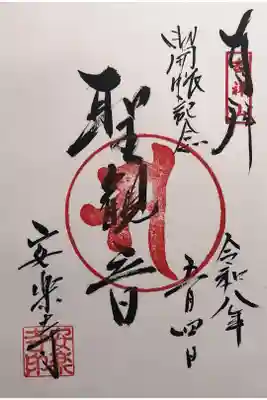 奉拝
令和八年
五月四日
開帳記念
聖観音
安楽寺
安楽寺印